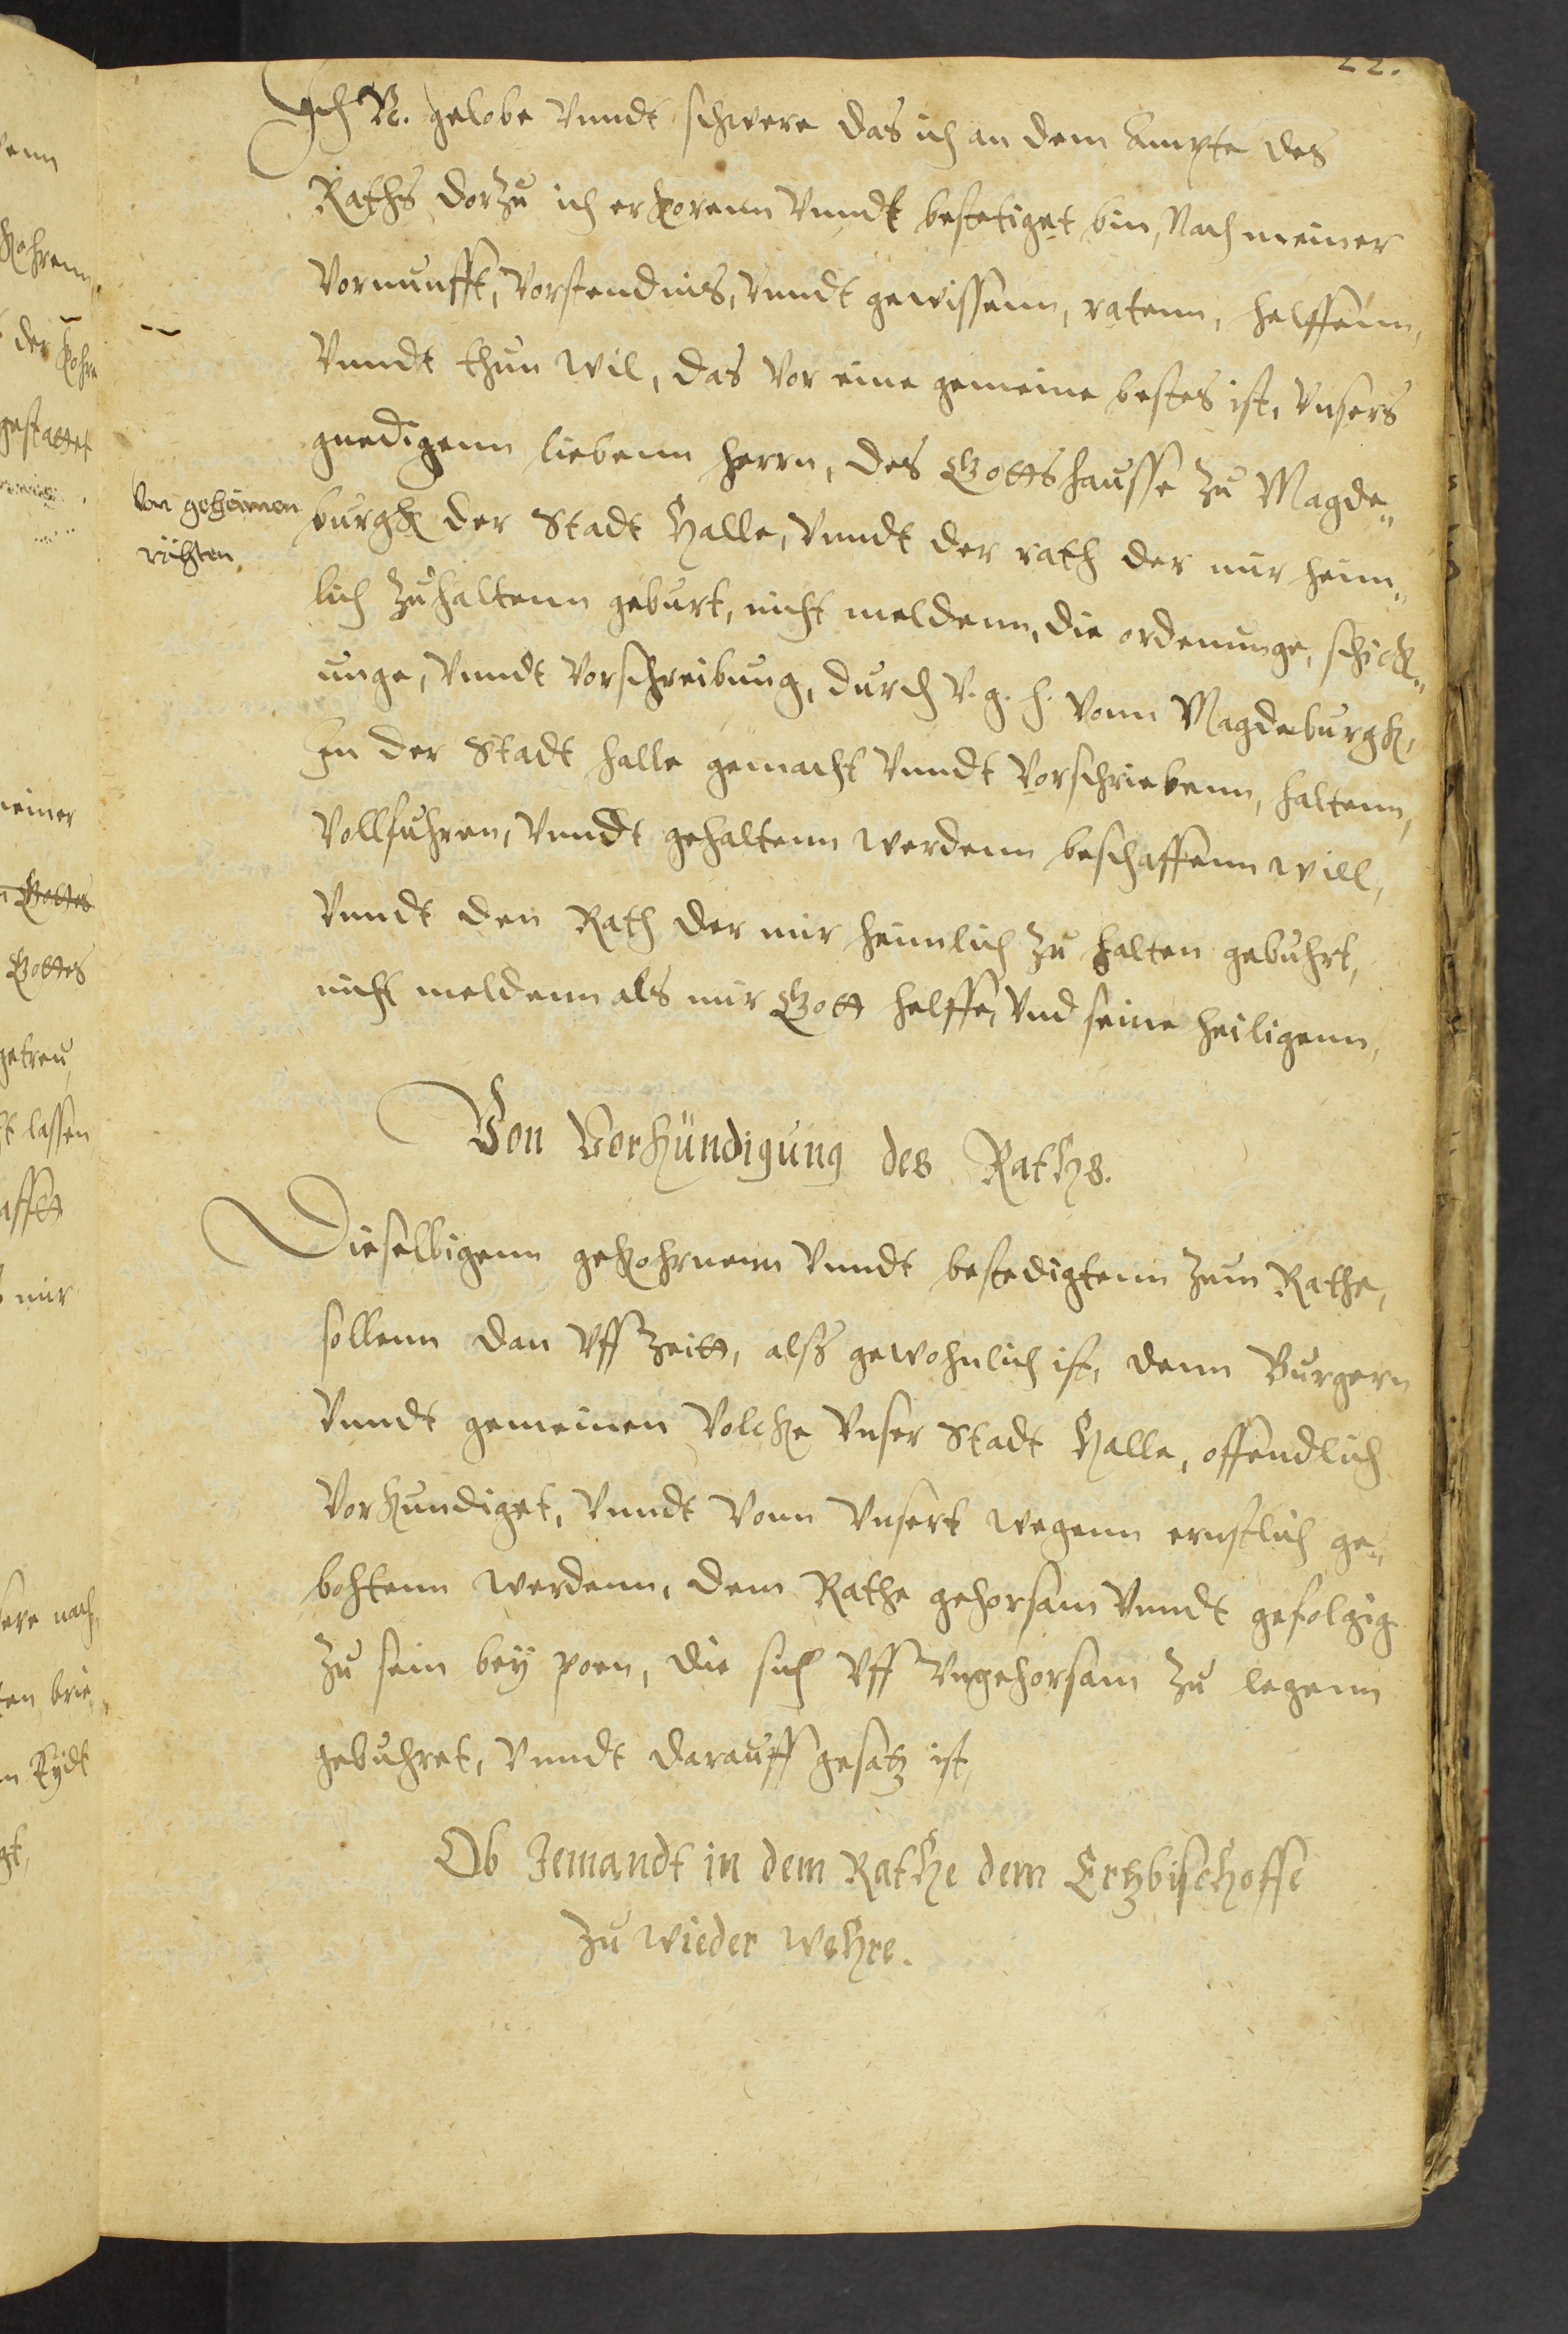 22.
Ich N. gelobe vnndt schwere das ich an dem Ampte des
Raths dorzu ich erkorenn vnndt bestetiget bin, Nach meiner
vornunfft, vorstendnis, vnndt gewissenn, ratenn, helffenn,
vnndt thun wil, das vor eine gemeine bestes ist, vnsers
gnedigenn liebenn herrn, des Gottshausse zu Magde„
burgk der Stadt Halle, vnndt der rath der mir heim„
lich zuhaltenn geburt, nicht meldenn, die ordenunge, schick„
unge, vnndt vorschreibung, durch v. g. h. vonn Magdeburgk,
In der Stadt halle gemacht vnndt vorschriebenn, haltenn,
vollfuhren, vnndt gehaltenn werdenn beschaffenn will,
vnndt den Rath der mir heimlich zu halten gebuhrt,
nicht meldenn als mir Gott helffe, vnd seine heiligenn,
von geheimen
räthen
Von Vorkündigung des Raths.
Dieselbigenn gekohrnenn vnndt bestedigtenn zum Rathe,
sollenn dan vff zeitt, alß gewohnlich ist, denn Burgern
vnndt gemeinen volcke vnser Stadt Halle, offendlich
vorkundiget, vnndt vonn vnsert wegenn ernstlich ge„
bohtenn werdenn, dem Rathe gehorsam vnndt gefolgig
zu sein bey poen, die sich vff vngehorsam zu legenn
gebuhret, vnndt darauff gesatz ist,
Ob Jemandt in dem Rathe dem Ertzbischoffe
zu wieder wehre.